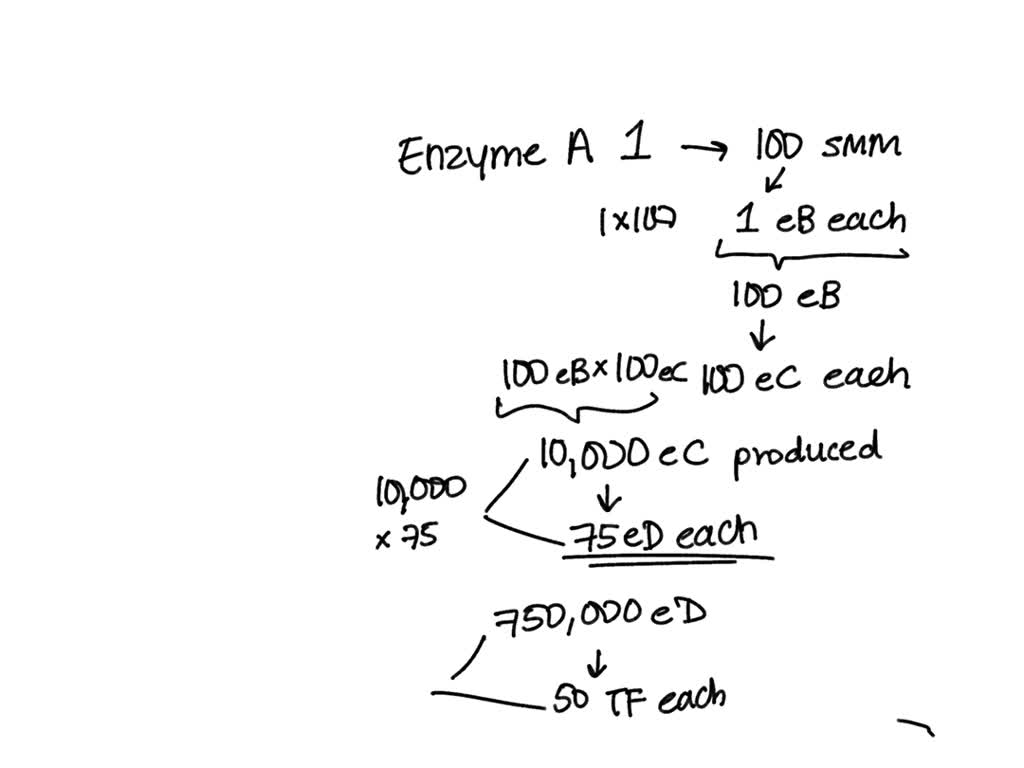 Enzyme A 1 → 100 SMM
1x100 1 eB each
100 eB
100 eB x 100 eC 100 eC each
10,000 eC produced
10,000
x 75 75 eD each
750,000 eD
50 TF each